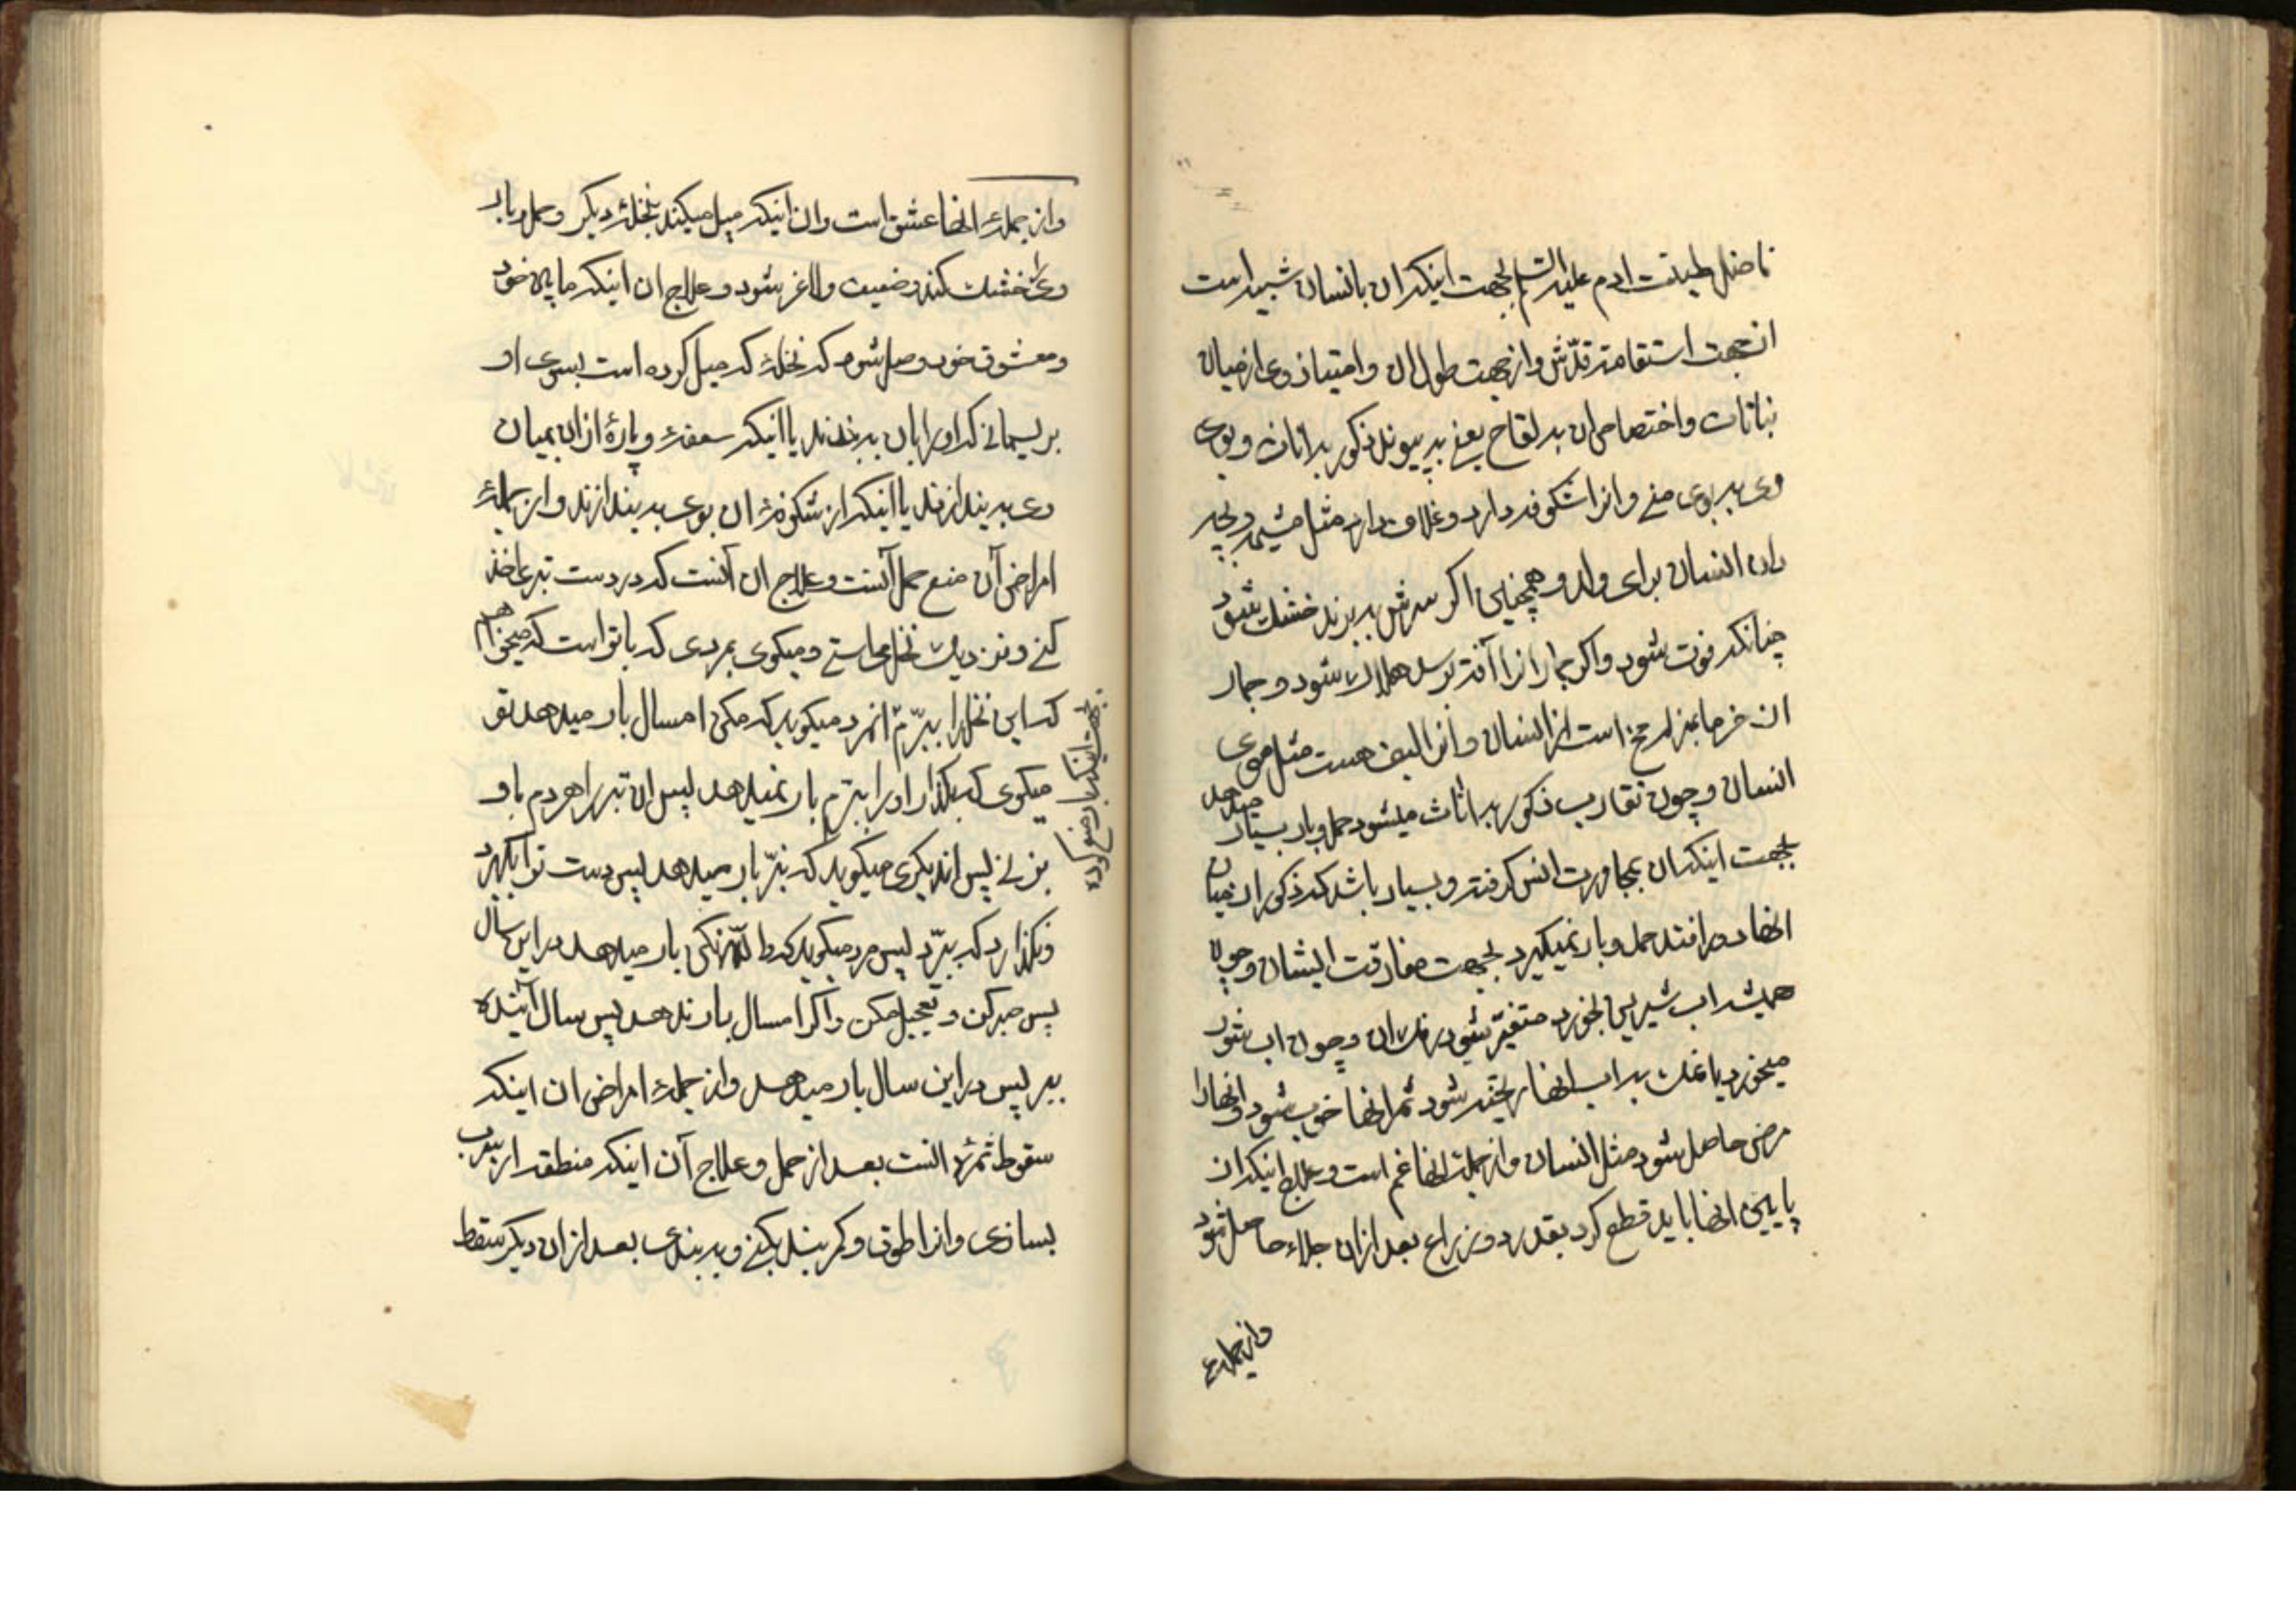 فاضل طینت ادم علیه السلم بجهت اینکه ان بانسان شبیه است
از جهت استقامت قدّش و از جهت طول ان و امتیاز وی از میان
نباتات و اختصاص ان به لقاح یعنی به پیوند ذکور به اناث و بوی
وی به بوی منی و انرا شکوفه دارد و غلاف دارد مثل مشیمه و بچه
دان انسان برای ولد و همچنین اکر سرش به برند خشک شود
چنانکه فوت شود و اکر جمار انرا آفته برسد هلاک شود و جمار
ان خرما بمنزله مخ است از انسان و انرا لیف هست مثل موی
انسان و چون تقارب ذکور به اناث میشود حمل و بار بسیار میدهد
بجهت اینکه ان بمجاورت انس کرفته و بسیار باشد که ذکور از میان
انها دور افتد حمل و بار نمیکیرد بجهت مفارقت ایشان و چون
همیشه اب شیرین بخورد متغیّر شود رنک ان و چون اب شور
میخورد یا نمک به اب انها ریخته شود ثمر انها خوب شود و انها را
مرضی حاصل شود مثل انسان و از جمله انها غم است و علاج اینکه ان
پایین انها باید قطع کرد بقدر دو ذراع بعد از ان جلاء حاصل شود
و از جملهء
و از جملهٔ انها عشق است و ان اینکه میل میکند بنخلهٔ دیکر و حمل و بار
وی را خشک کند و ضعیف و لاغر شود و علاج ان اینکه مابین خود
و معشوق خود وصل شود که نخلهٔ که میل کرده است بسوی او
بریسمانی که او را بان به بندند یا اینکه سعفهٔ و پارهٔ از ان بمیان
وی به بیندازند یا اینکه از شکوفهٔ ان بوی به بیندازند و از جملهٔ
امراض آن منع حمل آنست و علاج ان آنست که در دست تبری اخذ
کنی و نزدیک نخل می‌استی و میکوی بمردی که با تو است که میخواهم
که این نخل را ببرّم انمرد میکوید که مکن امسال بار میدهد تو
میکوی که بکذار او را ببرّم بار نمیدهد پس ان تبر را هر دم باو
بزنی پس اندیکری میکوید که نبرّ بار میدهد پس دست تو را بکیرد
و نکذارد که ببرّد پس مرد میکوید که والله نکن بار میدهد در این سال
پس صبر کن و تعجیل مکن و اکر امسال بار ندهد پس سال آینده
ببر پس در این سال بار میدهد و از جملهٔ امراض ان اینکه
سقوط ثمرهٔ انست بعد از حمل و علاج آن اینکه منطقه از سرب
بسازی و انرا طوق و کمربند بکنی و به بندی بعد از ان دیکر سقط
بجهت اینکه بار منع کرده